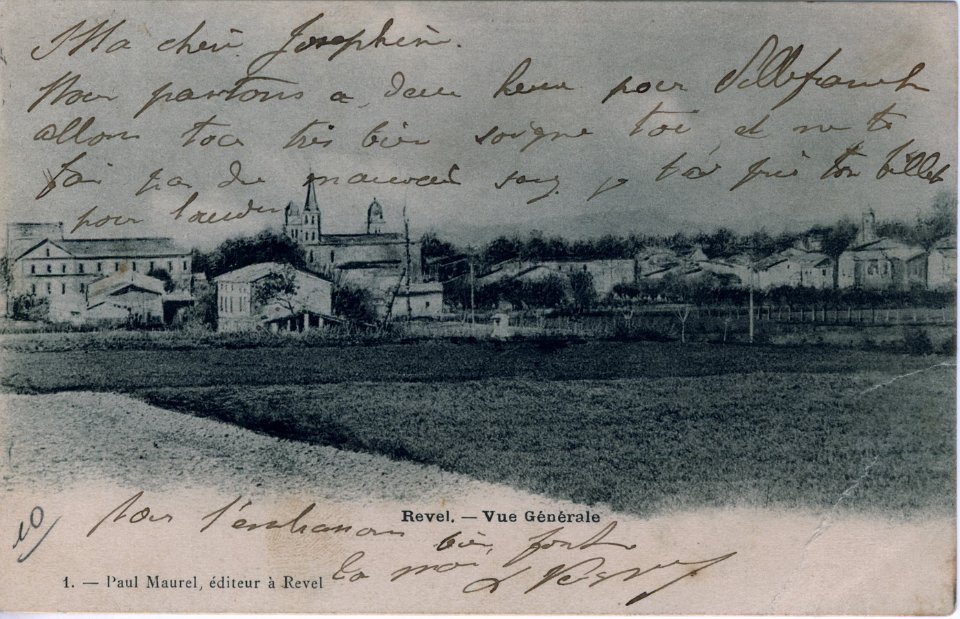 Ma chèr Josephin.
Nous partons a deux heure pour Villefranch
allons tout très bien soigne toi et ne te
fai pas de mauvai sang y toi prie ton billet
pour
nous t'enbrasson bien fort
ta
Revel. — Vue Générale
1. — Paul Maurel, éditeur à Revel
10